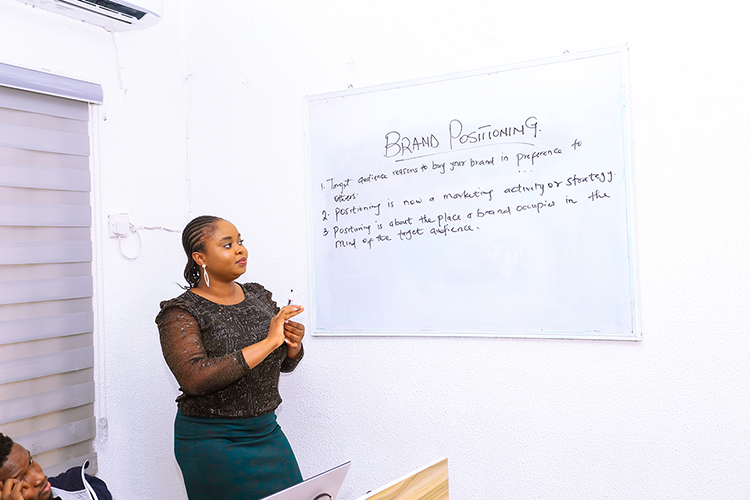 BRAND POSITIONING.
1. Target audience reasons to buy your brand in preference to
others.
2. Positioning is now a marketing activity or strategy.
3 Positioning is about the place a brand occupies in the
mind of the target audience.